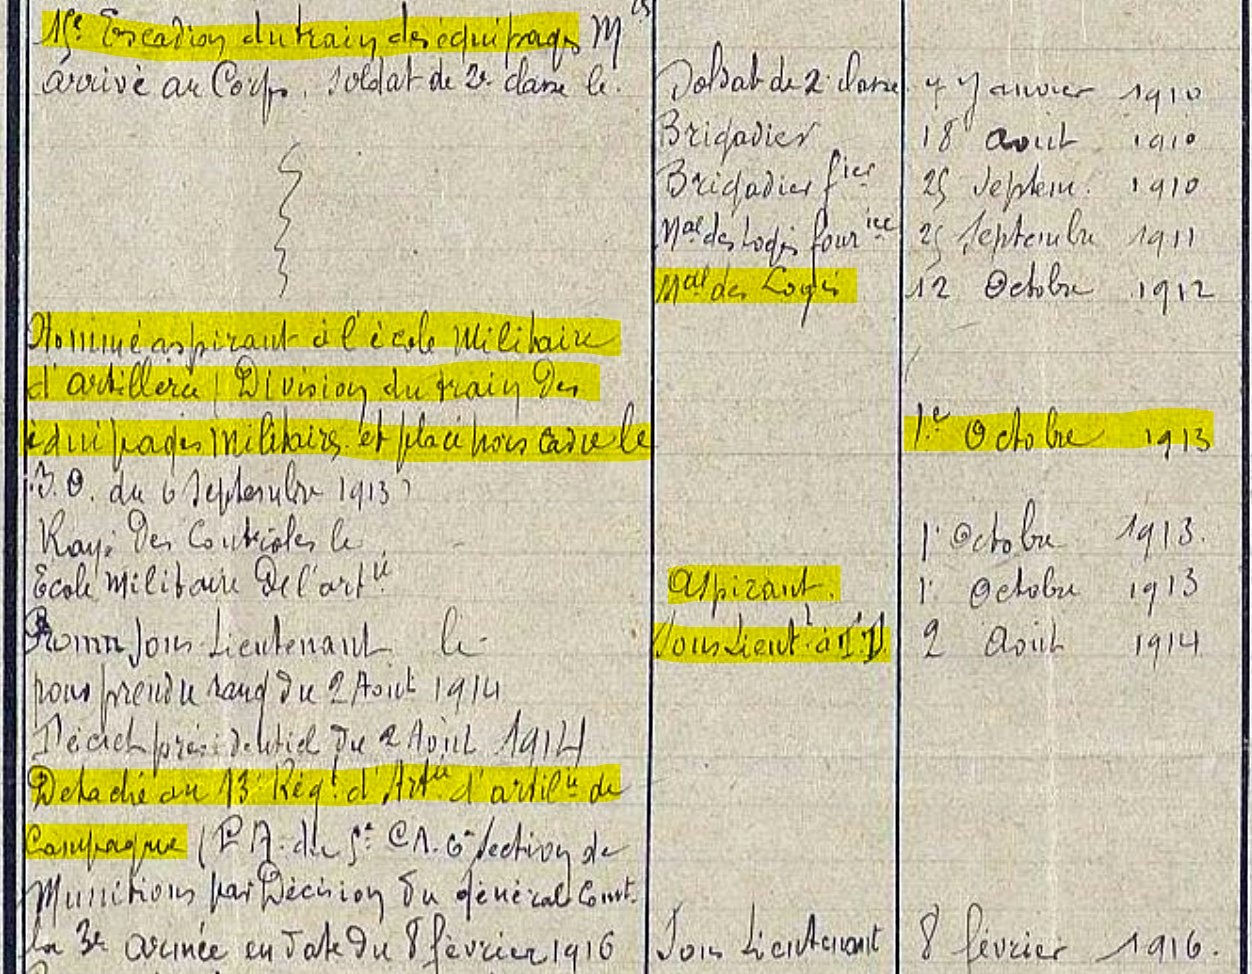 15e Escadron du train des équipages Mres
arrivé au Corps, soldat de 2e classe le. Soldat de 2e classe 7 Janvier 1910
Brigadier 18 aout 1910
Brigadier fier 25 Septem. 1910
Mal des Logis fourier 25 Septembre 1911
Mal des Logis 12 Octobre 1912
Nommé aspirant à l'école Militaire
d'artillerie (Division du train des
équipages Militaires et placé hors cadre le 1er Octobre 1913
B.O. du 6 Septembre 1913)
Rayé des Controles le 1r Octobre 1913.
Ecole Militaire de l'artie Aspirant. 1r Octobre 1913
Promu Sous Lieutenant le Sous Lieutt à T.D. 2 Août 1914
pour prendre rang du 2 Aout 1914
Décret présidentiel du 2 Août 1914
Détaché au 13e Régt d'Artie d'artilie de
Campagne (P.A. du 5e C.A. 6e Section de
Munitions par Décision du général Comt.
la 3e armée en date du 8 février 1916 Sous Lieutenant 8 février 1916.